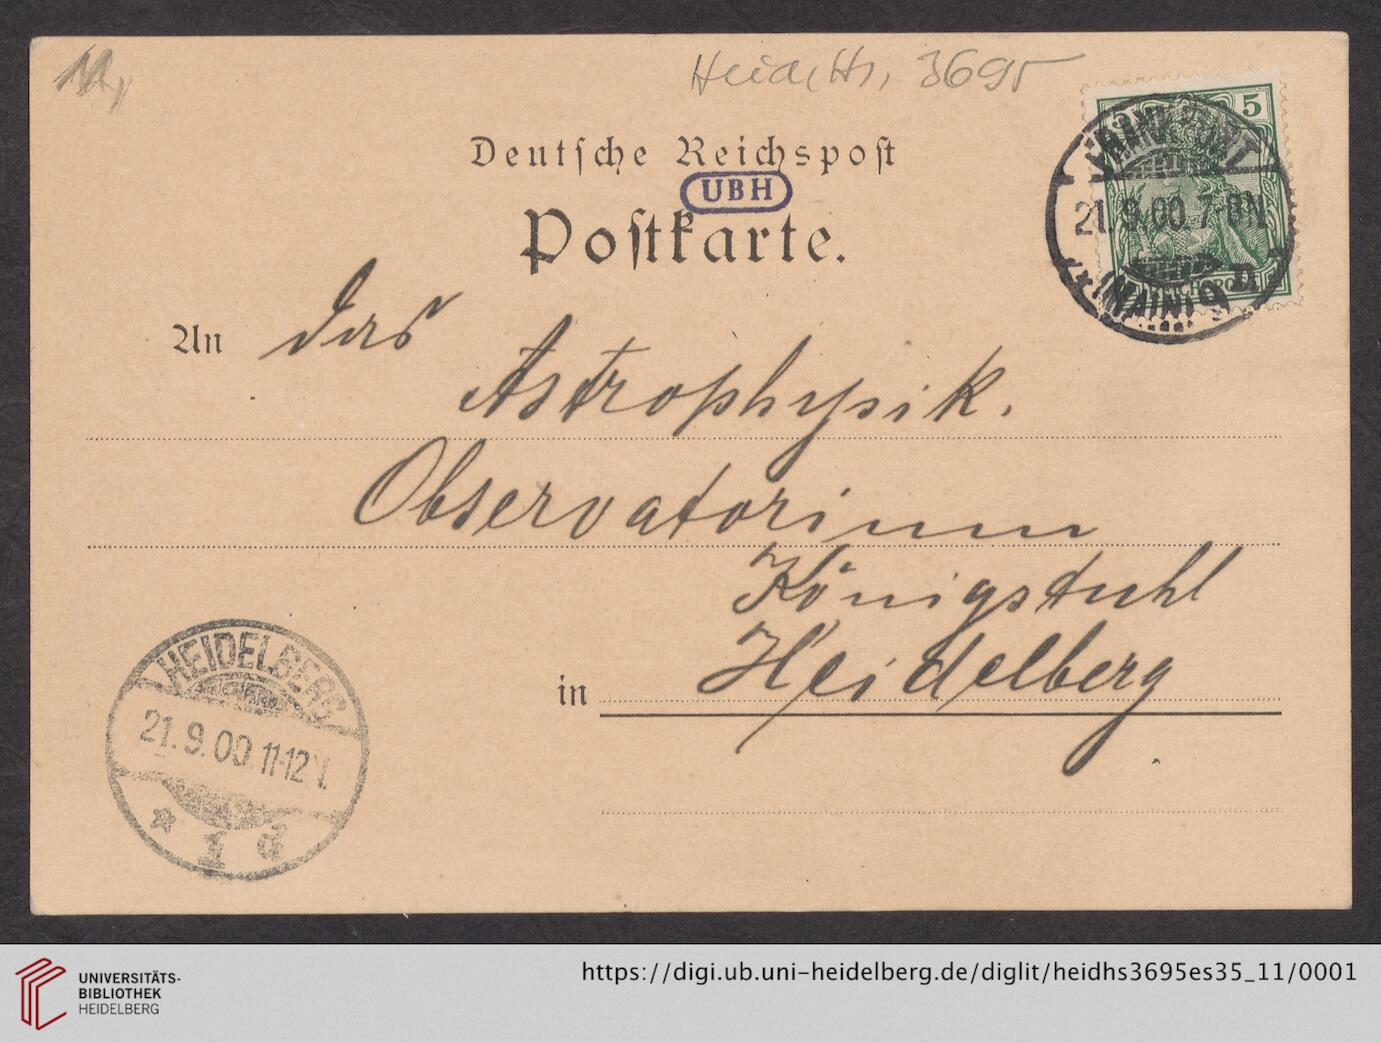 11,
Heid. Hs. 3695
Deutſche Reichspoſt
UBH
Poſtkarte.
5 5
FRANKFURT
21.9.00. 7-8N.
* (MAIN) 9 n.
An das
Astrophysik.
Observatorium
Königstuhl
in Heidelberg
HEIDELBERG
21.9.00 11-12
* 1 d
UNIVERSITÄTS-
BIBLIOTHEK
HEIDELBERG
https://digi.ub.uni-heidelberg.de/diglit/heidhs3695es35_11/0001